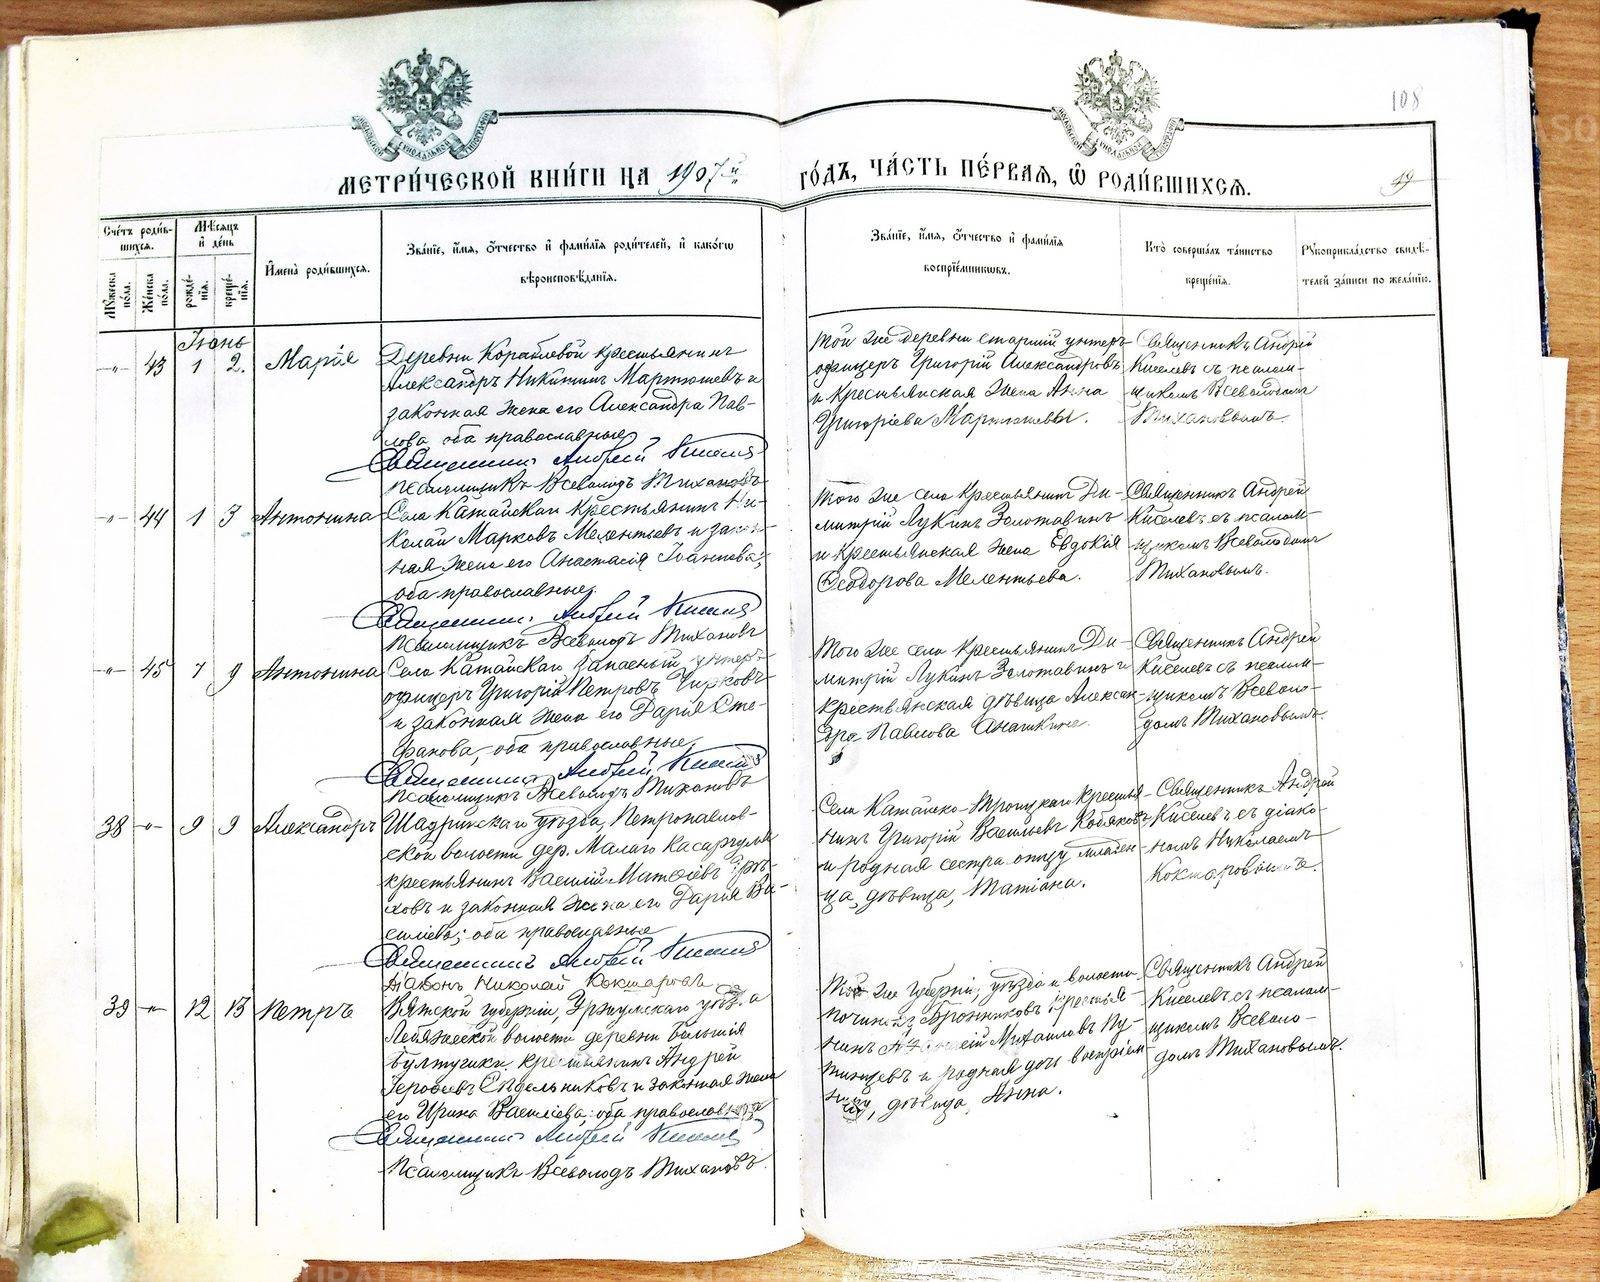 108
МЕТРИ́ЧЕСКОЙ КНИ́ГИ НА 1907й ГО́ДЪ, ЧА́СТЬ ПЕ́РВАЯ, Ѡ РОДИ́ВШИХСЯ.
49
Сче́тъ роди́в-
шихся.
Му́жеска по́ла.
Же́нска по́ла.
Мѣ́сяцъ
и де́нь
рожде́-
нія.
креще́-
нія.
Имена̀ роди́вшихся.
Зва́ніе, и́мя, о́тчество и фами́лія роди́телей, и како́гѡ
вѣроисповѣ́данія.
Зва́ніе, и́мя, о́тчество и фами́лія
воспріе́мниковъ.
Кто̀ соверша́лъ та́инство
креще́нія.
Рукоприкла́дство свидѣ́-
телей за́писи по жела́нію.
Іюнь
-"- 43 1 2. Марія
Деревни Кораблевой крестьянинъ
Александръ Никитинъ Мартюшевъ и
законная жена его Александра Пав-
лова, оба православные
Священникъ Андрей Киселевъ
Псаломщикъ Всеволодъ Тихановъ
Той же деревни старшій унтеръ-
офицеръ Григорій Александровъ
и крестьянская жена Анна
Григоріева Мартюшевы.
Священникъ Андрей
Киселевъ съ псалом-
щикомъ Всеволодомъ
Тихановымъ.
-"- 44 1 3 Антонина
Села Катайскаго крестьянинъ Ни-
колай Марковъ Мелентьевъ и закон-
ная жена его Анастасія Іоаннова;
оба православные.
Священникъ Андрей Киселевъ
Псаломщикъ Всеволодъ Тихановъ
Того же села крестьянинъ Ди-
митрій Лукинъ Золотавинъ
и крестьянская жена Евдокія
Ѳеодорова Мелентьева.
Священникъ Андрей
Киселевъ съ псалом-
щикомъ Всеволодомъ
Тихановымъ.
-"- 45 7 9 Антонина
Села Катайскаго запасный унтеръ-
офицеръ Григорій Петровъ Чирковъ
и законная жена его Дарія Сте-
фанова, оба православные,
Священникъ Андрей Киселевъ
Псаломщикъ Всеволодъ Тихановъ
Того же села крестьянинъ Ди-
митрій Лукинъ Золотавинъ и
крестьянская дѣвица Алексан-
дра Павлова
Священникъ Андрей
Киселевъ съ псалом-
щикомъ Всеволо-
домъ Тихановымъ.
38 -"- 9 9 Александръ
Шадринскаго уѣзда, Петропавлов-
ской волости дер. Малаго Касаргуля
крестьянинъ Василій Матѳіевъ
и законная жена его Дарія Ва-
силіева; оба православные
Священникъ Андрей Киселевъ
Діаконъ Николай Кокшаровъ
Села Катайско-Троицкаго крестья-
нинъ Григорій Васильевъ Кобяковъ
и родная сестра отцу младен-
ца, дѣвица, Татіана.
Священникъ Андрей
Киселевъ съ діако-
номъ Николаемъ
Кокшаровымъ.
39 -"- 12 13 Петръ
Вятской губерніи, Уржумскаго уѣзда
Лебяжской волости деревни Большія
крестьянинъ Андрей
Сидельниковъ и законная жена
его Ирина Васильева; оба православные
Священникъ Андрей Киселевъ
Псаломщикъ Всеволодъ Тихановъ.
Той же губерніи, уѣзда и волости
починка Бронниковъ крестья-
нинъ Михаиловъ
и родная дочь воспріем-
нику, дѣвица, Анна.
Священникъ Андрей
Киселевъ съ псалом-
щикомъ Всеволо-
домъ Тихановымъ.